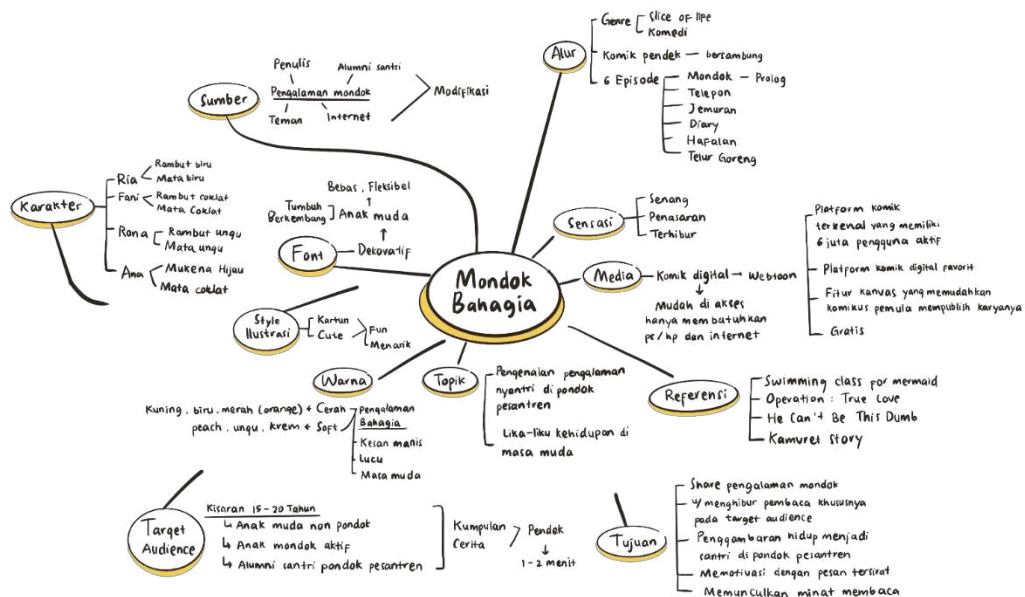 Mondok
Bahagia
Alur
Genre
Slice of life
Komedi
Komik pendek — bersambung
6 Episode
Mondok — Prolog
Telepon
Jemuran
Diary
Hafalan
Telur Goreng
Sumber
Penulis
Alumni santri
Pengalaman mondok
Teman
Internet
Modifikasi
Karakter
Ria
Rambut biru
Mata biru
Fani
Rambut coklat
Mata Coklat
Rona
Rambut ungu
Mata ungu
Ana
Mukena Hijau
Mata coklat
Font
Dekoratif
Anak muda
Bebas, Fleksibel
Tumbuh
Berkembang
Sensasi
Senang
Penasaran
Terhibur
Media
Komik digital → Webtoon
Mudah di akses
hanya membutuhkan
pc/hp dan internet
Platform komik
terkenal yang memiliki
6 juta pengguna aktif
Platform komik digital favorit
Fitur kanvas yang memudahkan
komikus pemula mempublish karyanya
Gratis
Style
Ilustrasi
Kartun
Cute
Fun
Menarik
Warna
Kuning, biru, merah (orange) → Cerah
peach, ungu, krem → Soft
Pengalaman
Bahagia
Kesan manis
Lucu
Masa muda
Topik
Pengenalan pengalaman
nyantri di pondok
pesantren
Lika-liku kehidupan di
masa muda
Referensi
Swimming class for mermaid
Operation : True Love
He Can't Be This Dumb
Kamuret Story
Target
Audience
Kisaran 15-20 Tahun
↳ Anak muda non pondok
↳ Anak mondok aktif
↳ Alumni santri pondok pesantren
Kumpulan
Cerita
Pendek
1-2 menit
Tujuan
Share pengalaman mondok
u/ menghibur pembaca khususnya
pada target audience
Penggambaran hidup menjadi
santri di pondok pesantren
Memotivasi dengan pesan tersirat
Memunculkan minat membaca